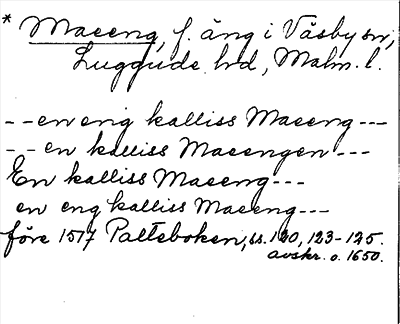 * Maeeng, f. äng i Väsby sn,
Luggude hd, Malm. l.
--en enig kalliss Maeeng---
--en kalliss Maeengen---
En kalliss Maeeng---
en eng kalliss Maeeng---
före 1517 Palteboken, ss. 120, 123-125.
avskr. o. 1650.